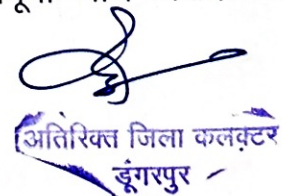 अतिरिक्त जिला कलक्टर
डूंगरपुर